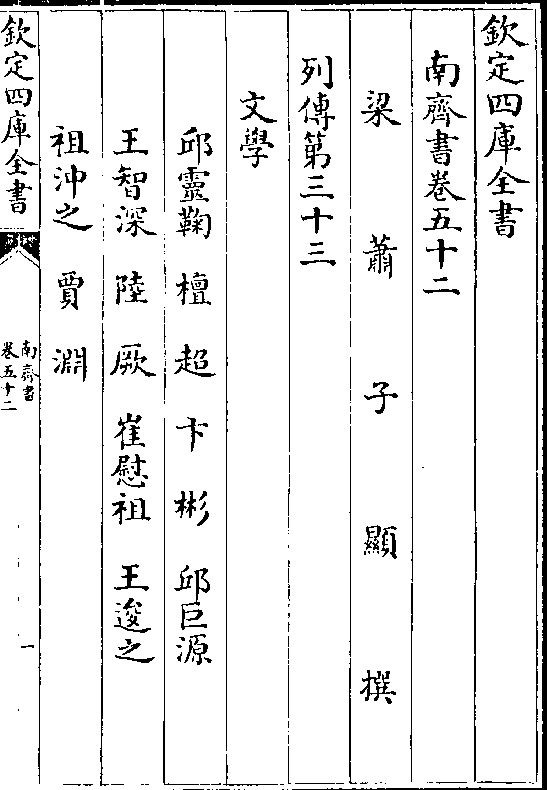 欽定四庫全書
南齊書卷五十二
梁蕭子顯撰
列傳第三十三
文學
邱靈鞠 檀超 卞彬 邱巨源
王智深 陸厥 崔慰祖 王逡之
祖沖之 賈淵
欽定四庫全書
南齊書
卷五十二
一